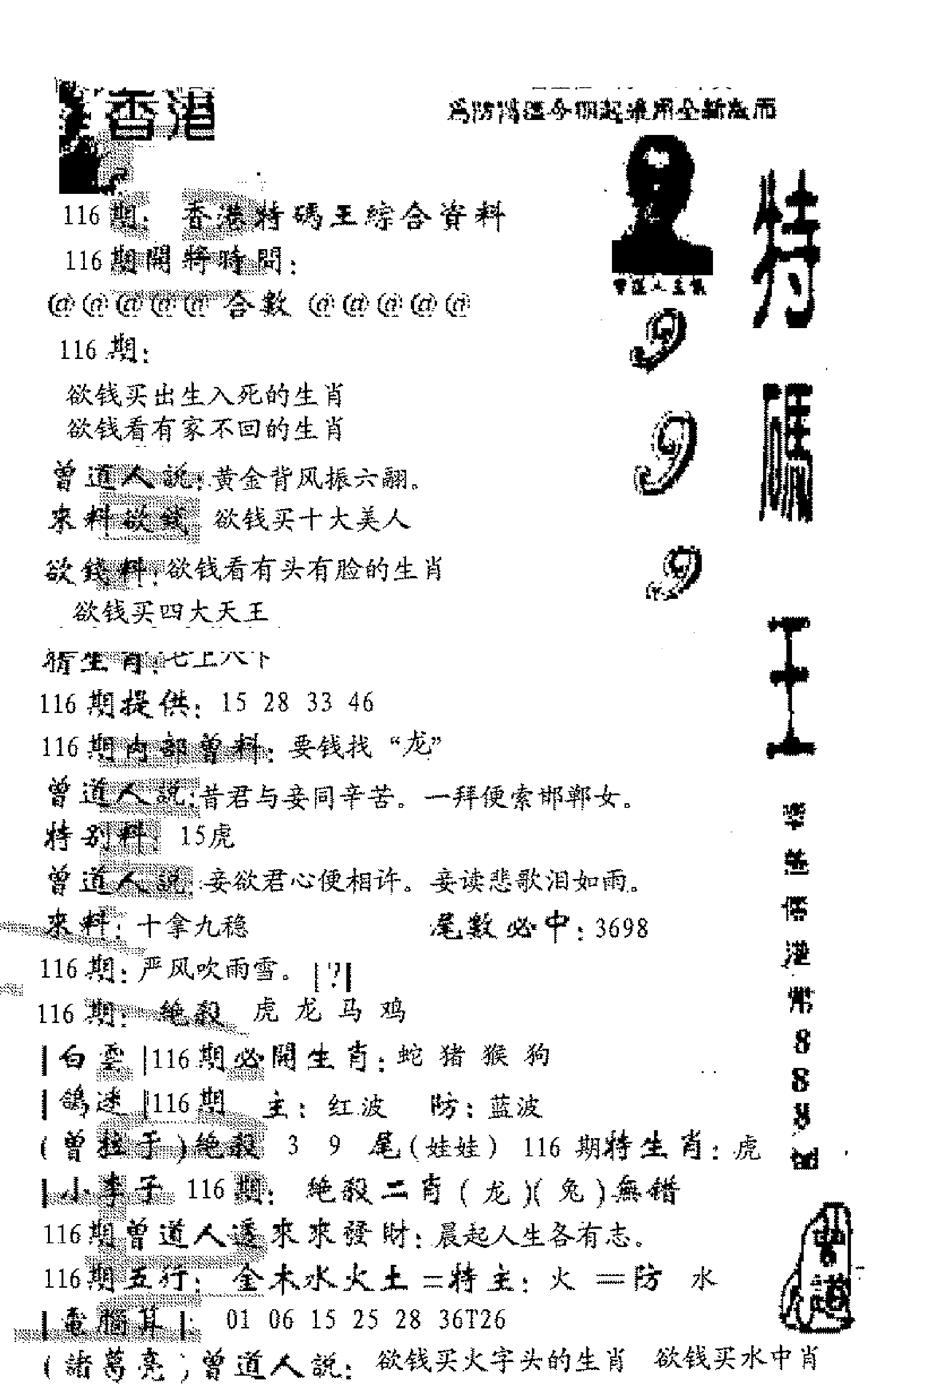 香港
為防搗亂今期起采用全新版面
116期：香港特碼王綜合資料
116期開將時間：
@@@@@合數@@@@@
116期：
欲钱买出生入死的生肖
欲钱看有家不回的生肖
曾道人說：黄金背风振六翮。
來料欲錢 欲钱买十大美人
欲錢料：欲钱看有头有脸的生肖
欲钱买四大天王
猜生肖：七上八下
116期提供：15 28 33 46
116期内部曾料：要钱找“龙”
曾道人說：昔君与妾同辛苦。一拜便索邯郸女。
特别料：15虎
曾道人說：妾欲君心便相许。妾读悲歌泪如雨。
來料：十拿九稳 尾數必中：3698
116期：严风吹雨雪。|?|
116期：絶殺 虎龙马鸡
|白雲|116期必開生肖：蛇猪猴狗
|鴿迷|116期 主：红波 防：蓝波
(曾拉于)絶殺 3 9 尾(娃娃) 116期特生肖：虎
|小李子 116期：絶殺二肖(龙)(兔)無错
116期曾道人透來來發財：晨起人生各有志。
116期五行：金木水火土=特主：火 =防 水
|電腦算| 01 06 15 25 28 36T26
(諸葛亮)曾道人説：欲钱买火字头的生肖 欲钱买水中肖
曾道人主氣
9
9
9
特碼王
港幣888
曾道人